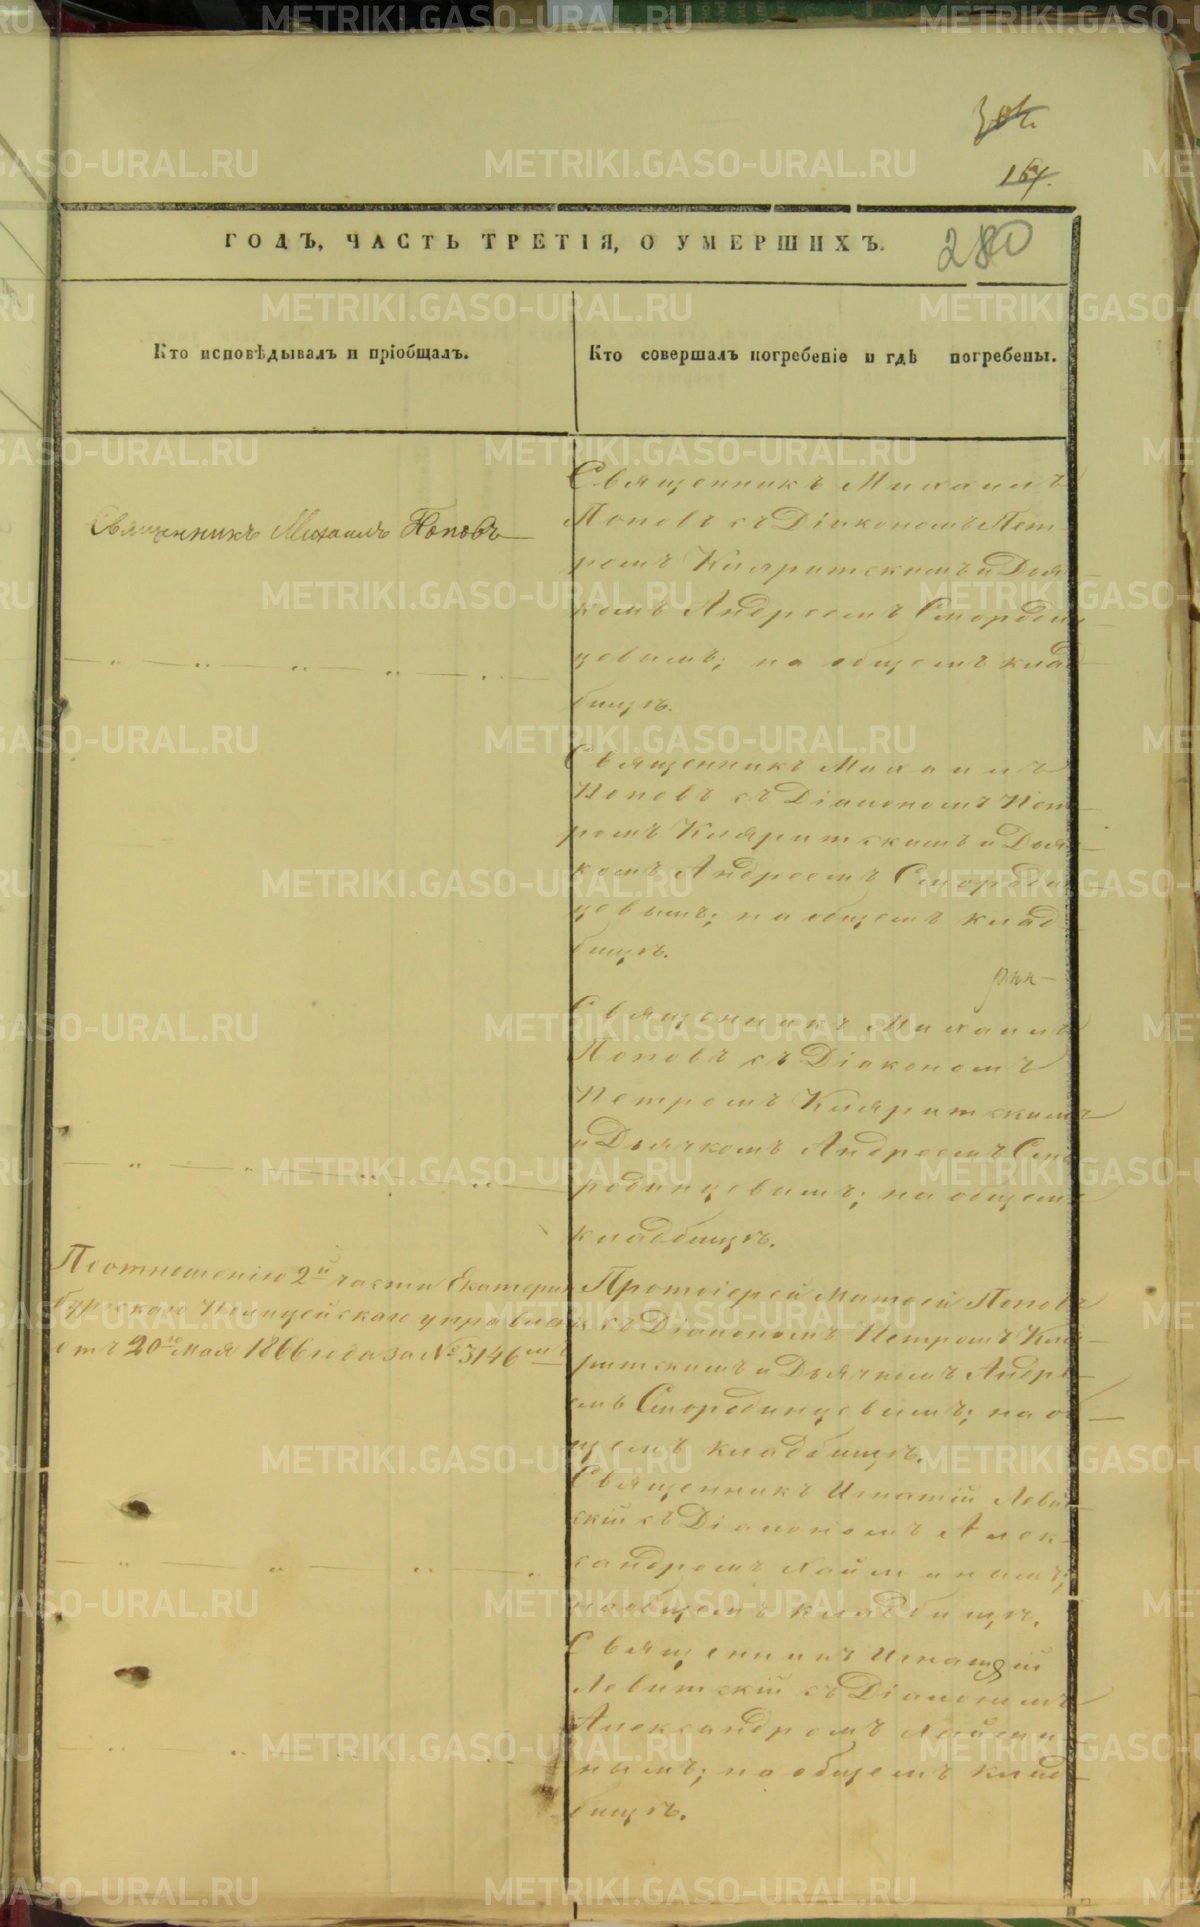 167.
280
ГОДЪ, ЧАСТЬ ТРЕТІЯ, О УМЕРШИХЪ.
Кто исповѣдывалъ и пріобщалъ.
Кто совершалъ погребеніе и гдѣ погребены.
Священникъ Михаилъ Поповъ
Священникъ Михаилъ
Поповъ съ Діакономъ Пет-
ромъ Кляритскимъ и Дьяч-
комъ Андреемъ Смородин-
цевымъ; на общемъ клад-
бищѣ.
Священникъ Михаилъ
Поповъ съ Діакономъ Пет-
ромъ Кляритскимъ и Дьяч-
комъ Андреемъ Смородин-
цевымъ; на общемъ клад-
бищѣ.
Священникъ Михаилъ
Поповъ съ Діакономъ
Петромъ Кляритскимъ
и Дьячкомъ Андреемъ Смо-
родинцевымъ; на общемъ
кладбищѣ.
По отношенію 2й части Екатерин
бургскаго Полицейскаго управленія
отъ 20го Мая 1866 года за № 3146мъ
Протоіерей Матѳей Поповъ
съ Діакономъ Петромъ Кля-
ритскимъ и Дьячкомъ Андре-
емъ Смородинцевымъ; на об-
щемъ кладбищѣ.
Священникъ Игнатій Левит-
скій съ Діакономъ Алек-
сандромъ Хайминымъ;
на общемъ кладбищѣ.
Священникъ Игнатій
Левитскій съ Діакономъ
Александромъ Хайми-
нымъ; на общемъ клад-
бищѣ.
METRIKI.GASO-URAL.RU